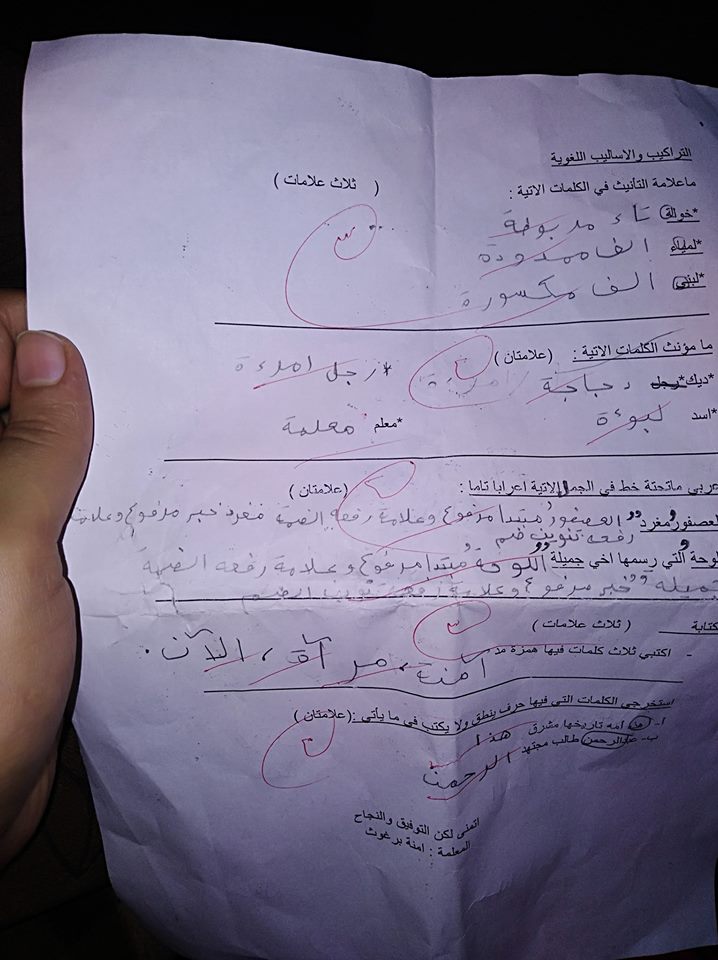 التراكيب والاساليب اللغوية
ماعلامة التأنيث في الكلمات الاتية : ( ثلاث علامات )
*خولة تاء مربوطة
*لمياء الف ممدودة
*لبنى الف مكسورة
ما مؤنث الكلمات الاتية : (علامتان )
*ديك *رجل دجاجة *رجل امرءة
*اسد لبوءة *معلم معلمة
عربي ماتحتة خط في الجمل الاتية اعراباً تاما : (علامتان )
العصفور مغرد العصفور مبتدا مرفوع وعلامة رفعه الضمة مغرد خبر مرفوع وعلامة
رفعه تنوين ضم
اللوحة التي رسمها اخي جميلة اللوحة مبتدا مرفوع وعلامة رفعه الضمة
جميلة خبر مرفوع وعلامة رفعه تنوين الضم
كتابة ( ثلاث علامات )
- اكتبي ثلاث كلمات فيها همزة مد آمنة، مرآة، الآن.
استخرجي الكلمات التي فيها حرف ينطق ولا يكتب في ما يأتي :(علامتان )
أ- هذه امه تاريخها مشرق هذا
ب- عبدالرحمن طالب مجتهد الرحمن
اتمنى لكن التوفيق والنجاح
المعلمة : امنة برغوث